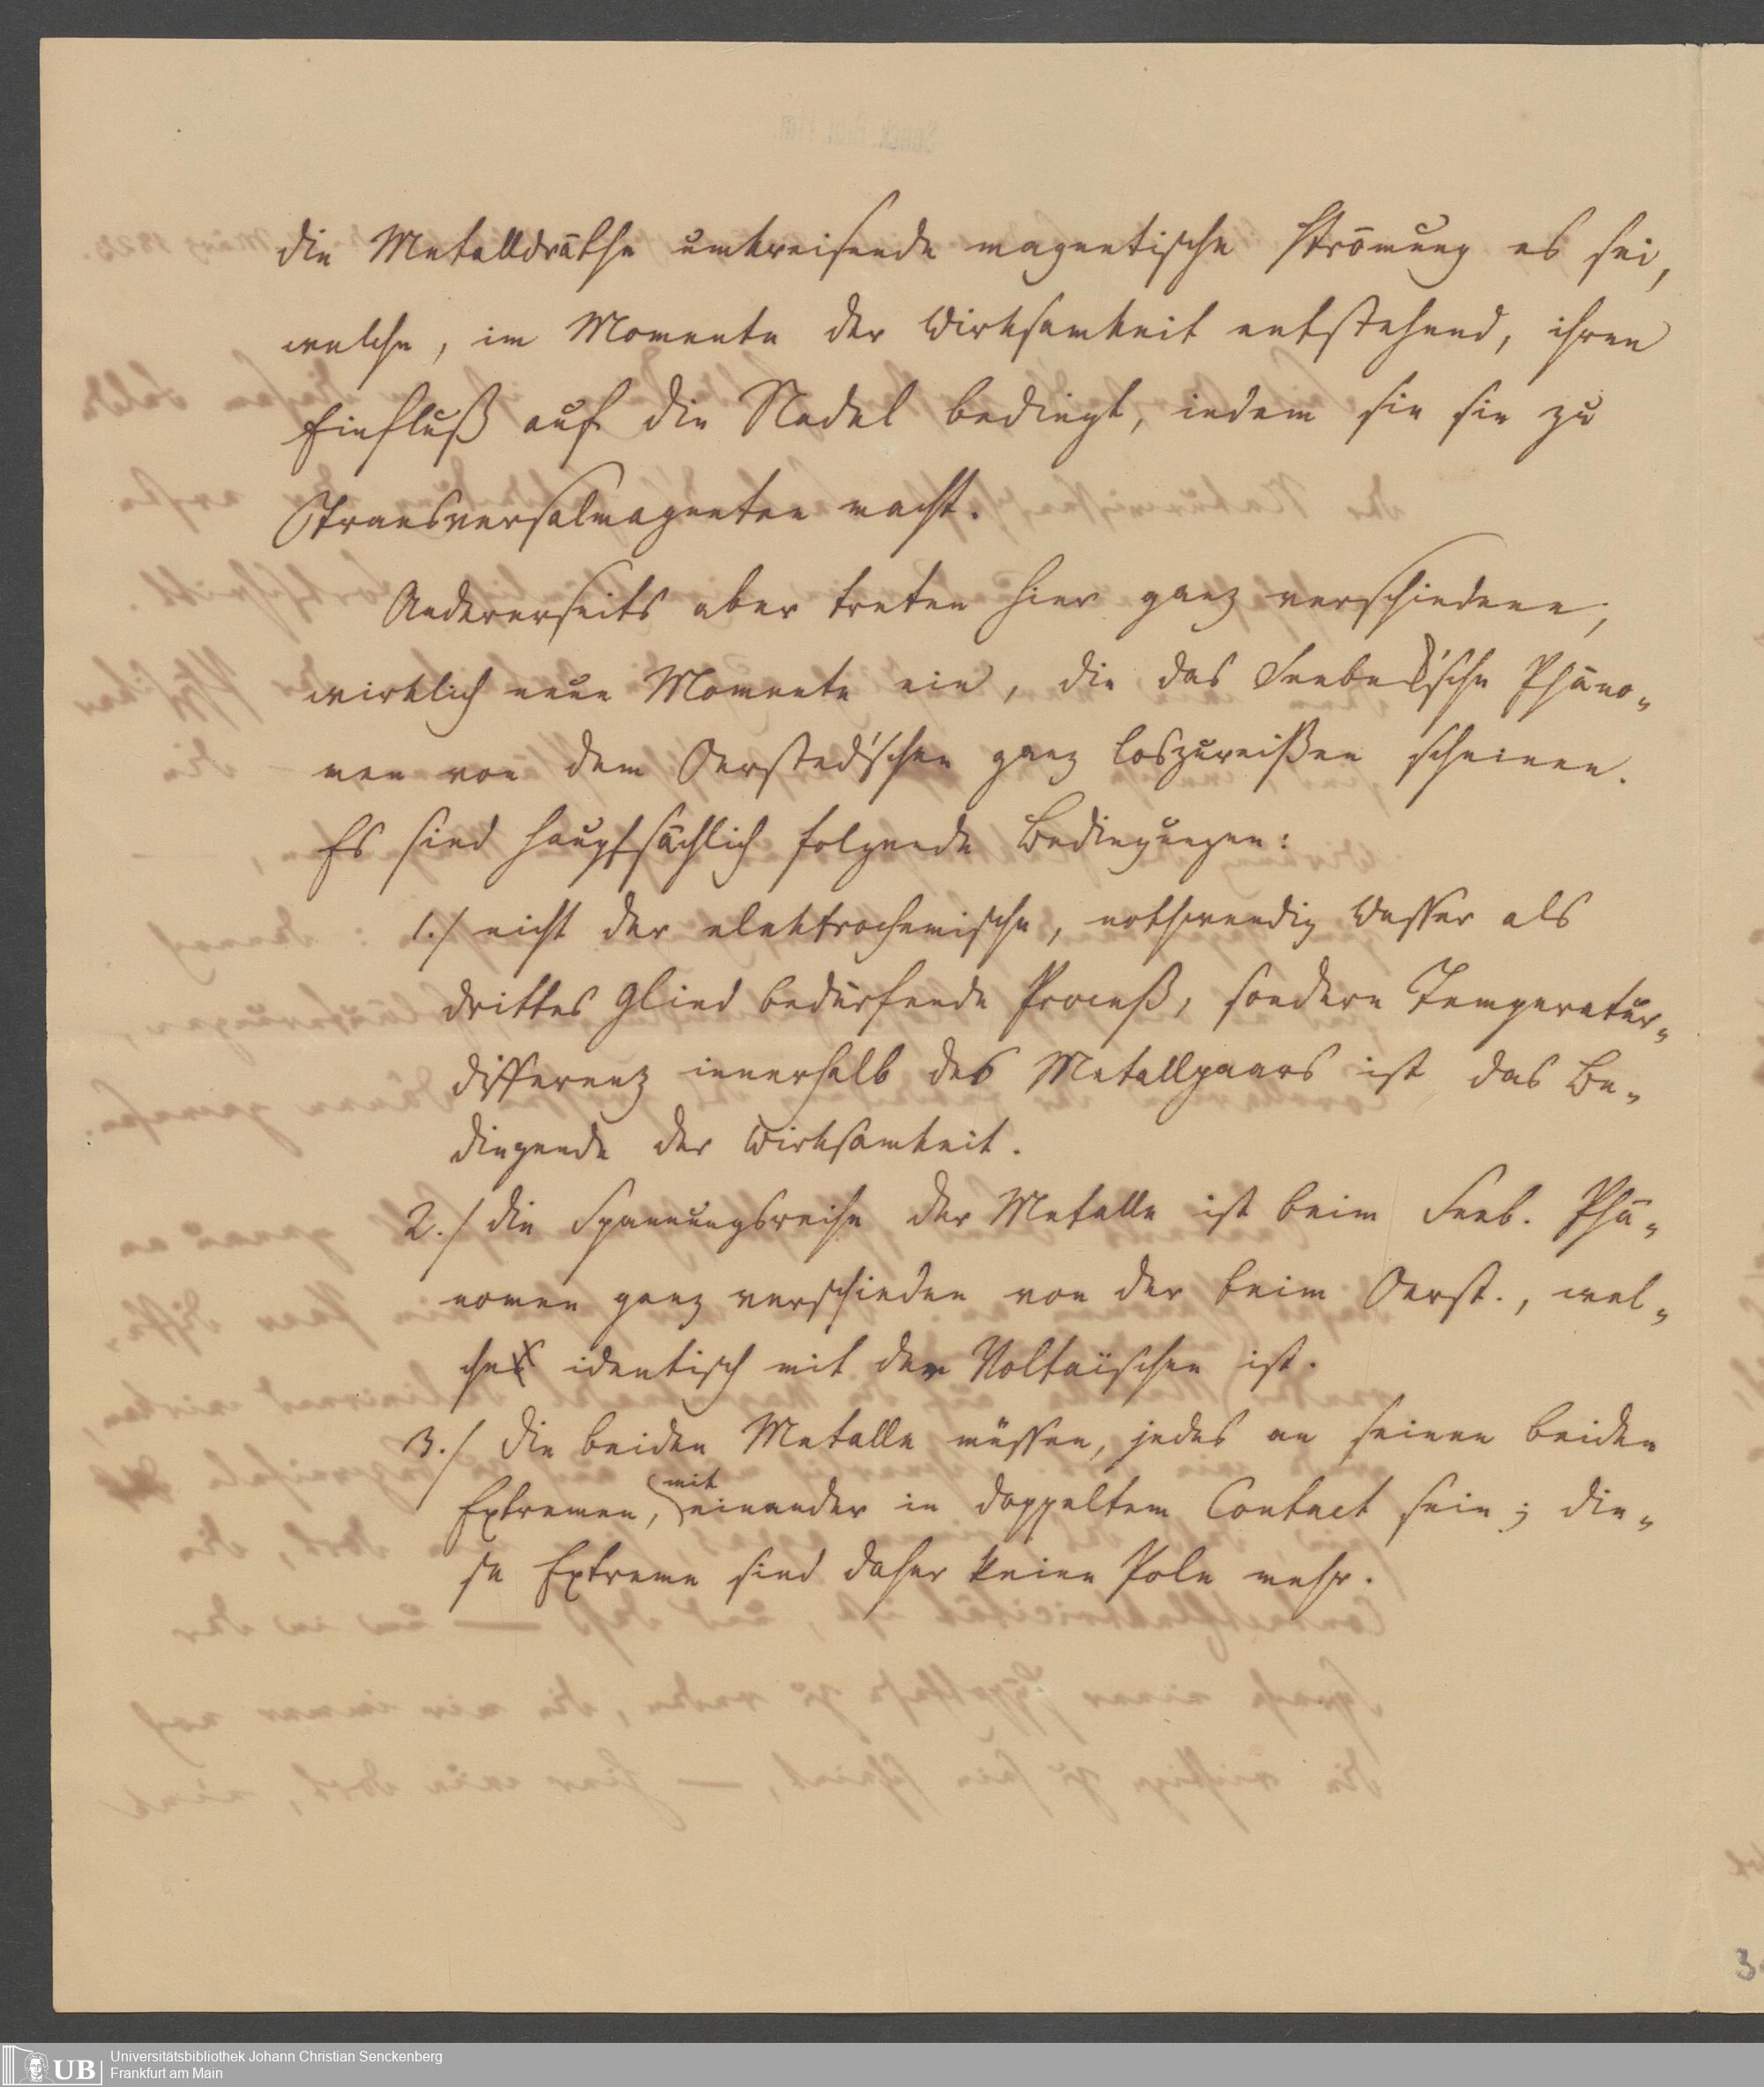 die Metalldräthe umkreisende magnetische Strömung es sei,
welche, im Momente der Wirksamkeit entstehend, ihren
Einfluß auf die Nadel bedingt, indem sie sie zu
Transversalmagneten macht.
Andererseits aber treten hier ganz verschiedene,
wirklich neue Momente ein, die das Seebeck'sche Phäno-
men von dem Oersted'schen ganz loszureißen scheinen.
Es sind hauptsächlich folgende Bedingungen:
1./ nicht der elektrochemische, nothwendig Wasser als
drittes Glied bedürfende Proceß, sondern Temperatur-
differenz innerhalb des Metallpaars ist das Be-
dingende der Wirksamkeit.
2./ die Spannungsreihe der Metalle ist beim Seeb. Phä-
nomen ganz verschieden von der beim Oerst., wel-
che identisch mit der Voltaïschen ist.
3./ die beiden Metalle müssen, jedes an seinen beiden
Extremen, mit einander in doppeltem Contact sein; die-
se Extreme sind daher keine Pole mehr.
3
UB
Universitätsbibliothek Johann Christian Senckenberg
Frankfurt am Main